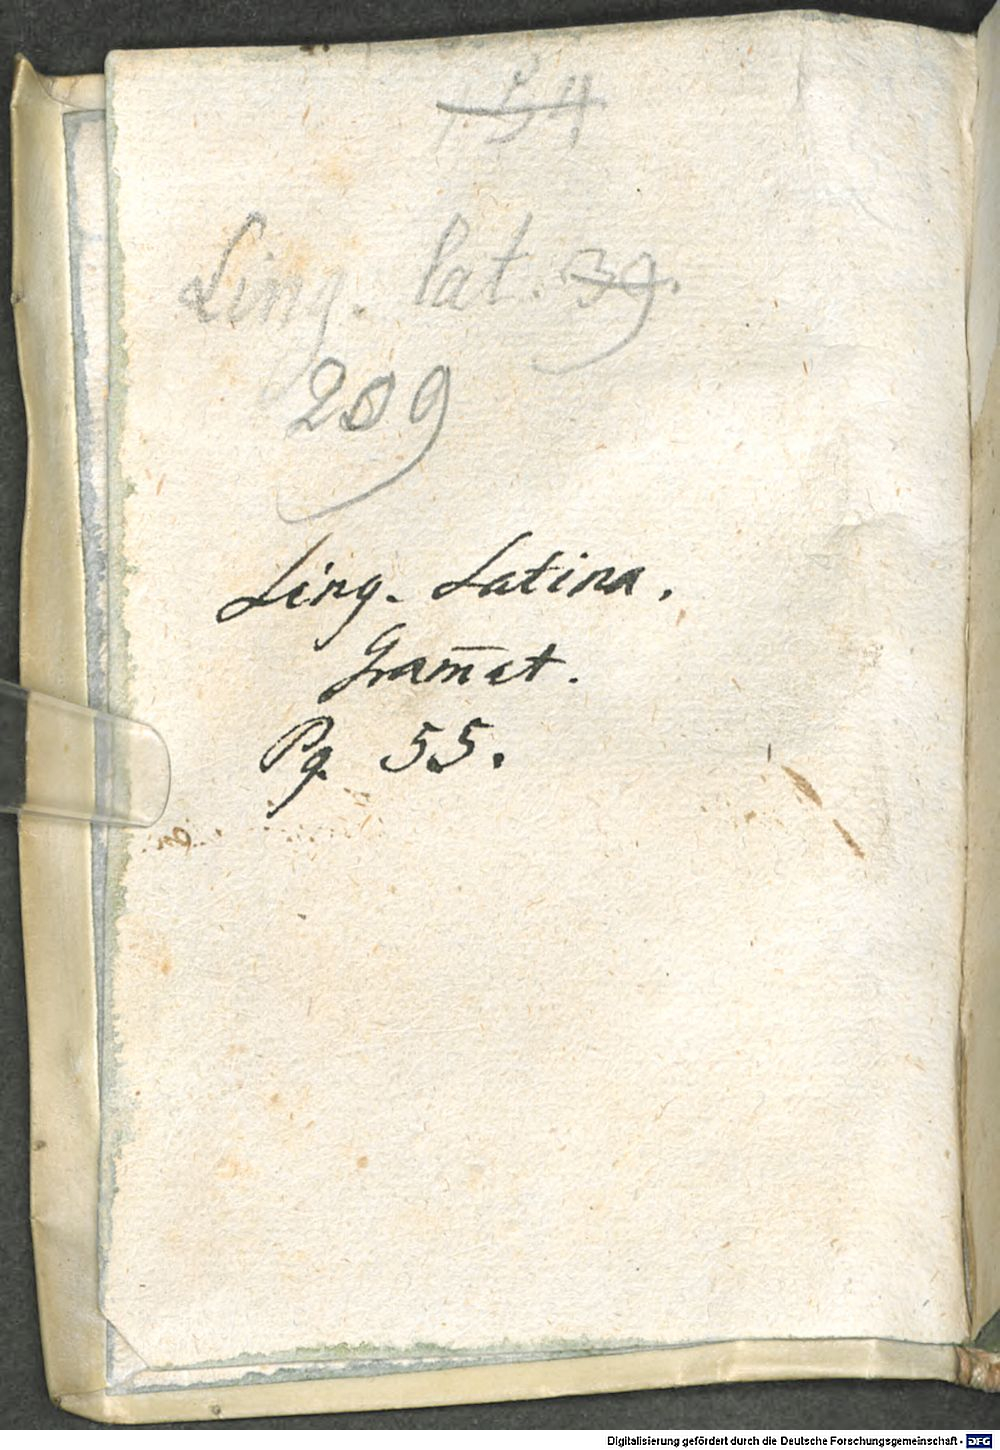 Ling. lat. 39.
209
Ling. Latina.
Gram̅at.
Pg. 55.
Digitalisierung gefördert durch die Deutsche Forschungsgemeinschaft - DFG